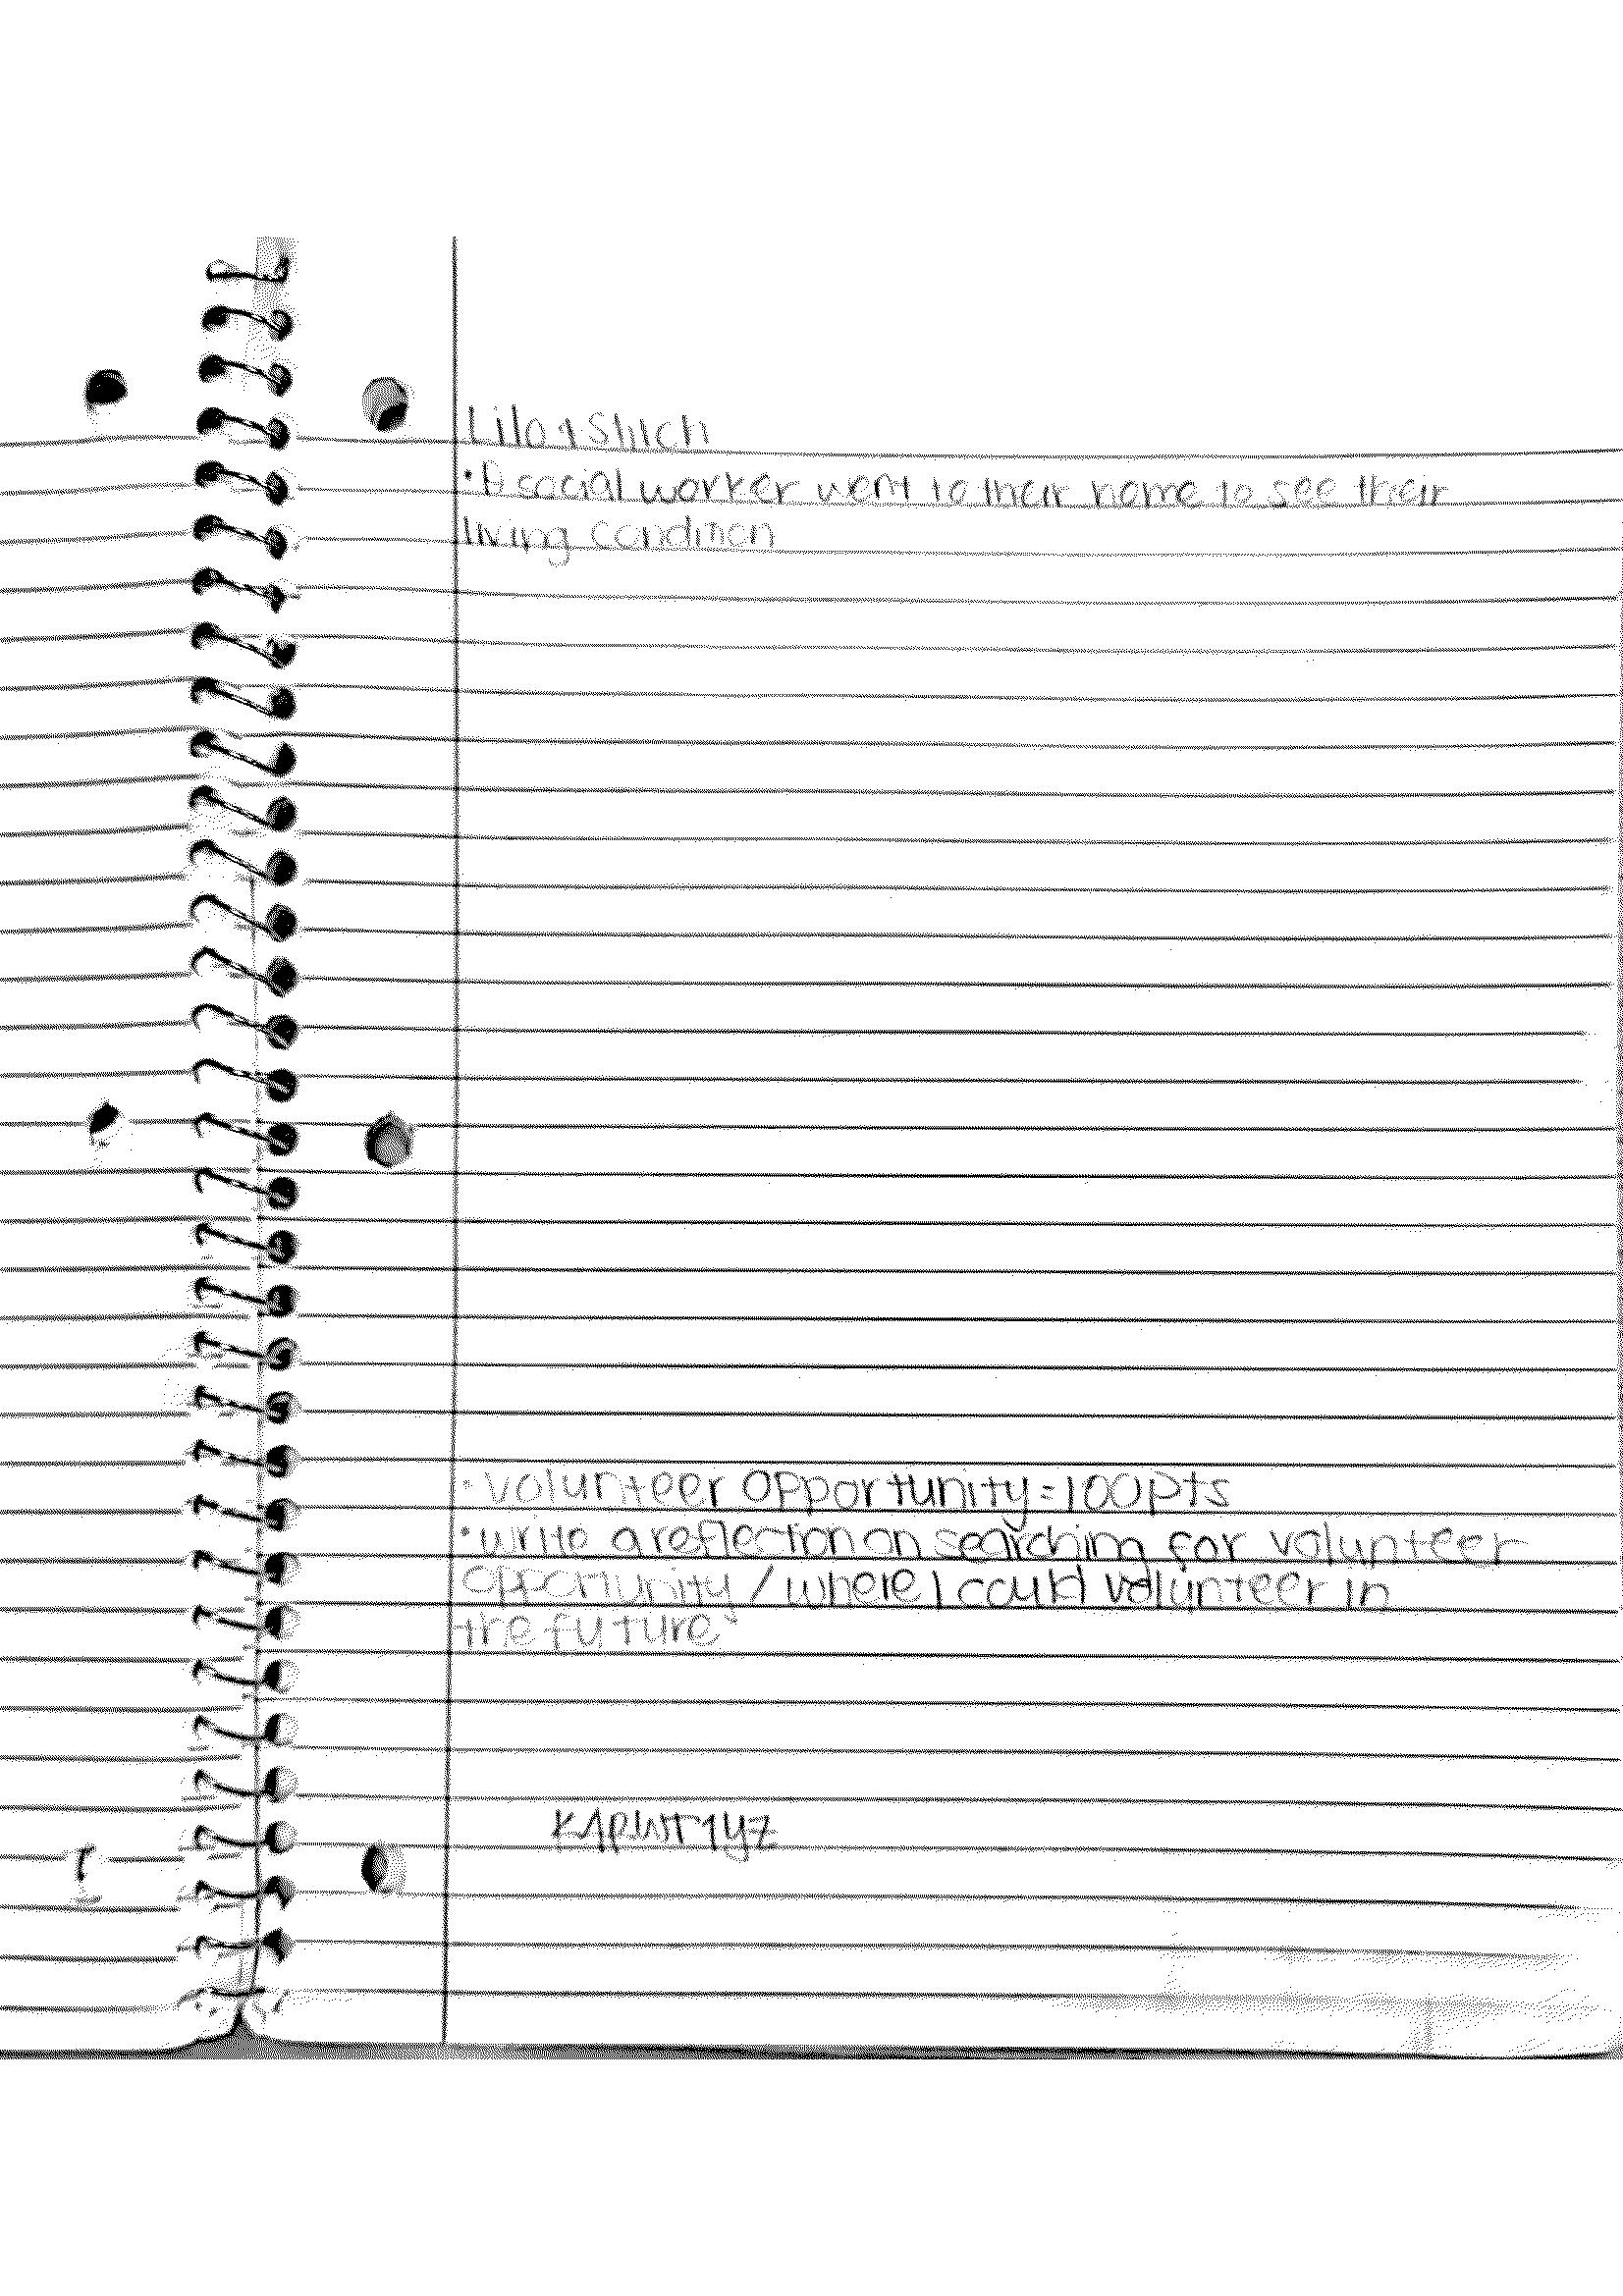 Lilo & Stitch
• A social worker went to their home to see their
living condition
• Volunteer opportunity = 100pts
• write a reflection on searching for volunteer
opportunity / where I could volunteer in
the future